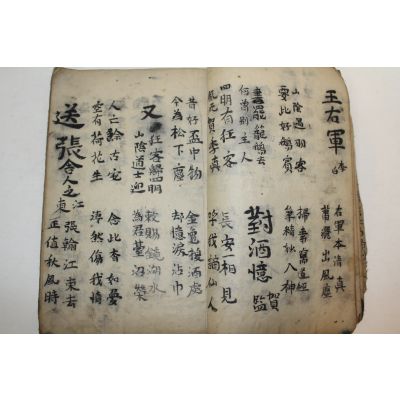 王右軍 李白
右軍本清真
瀟灑出風塵
山陰過羽客
要此好鵝賓
掃素寫道經
筆精妙入神
書罷籠鵝去
何曾別主人
對酒憶賀監
四明有狂客
風流賀季真
長安一相見
呼我謫仙人
昔好盃中物
今為松下塵
金龜換酒處
却憶淚沾巾
又
狂客歸四明
山陰道士迎
敕賜鏡湖水
為君臺沼榮
人亡餘古宅
空有荷花生
念此杳如夢
凄然傷我情
送張舍人之江東
張翰江東去
正值秋風時